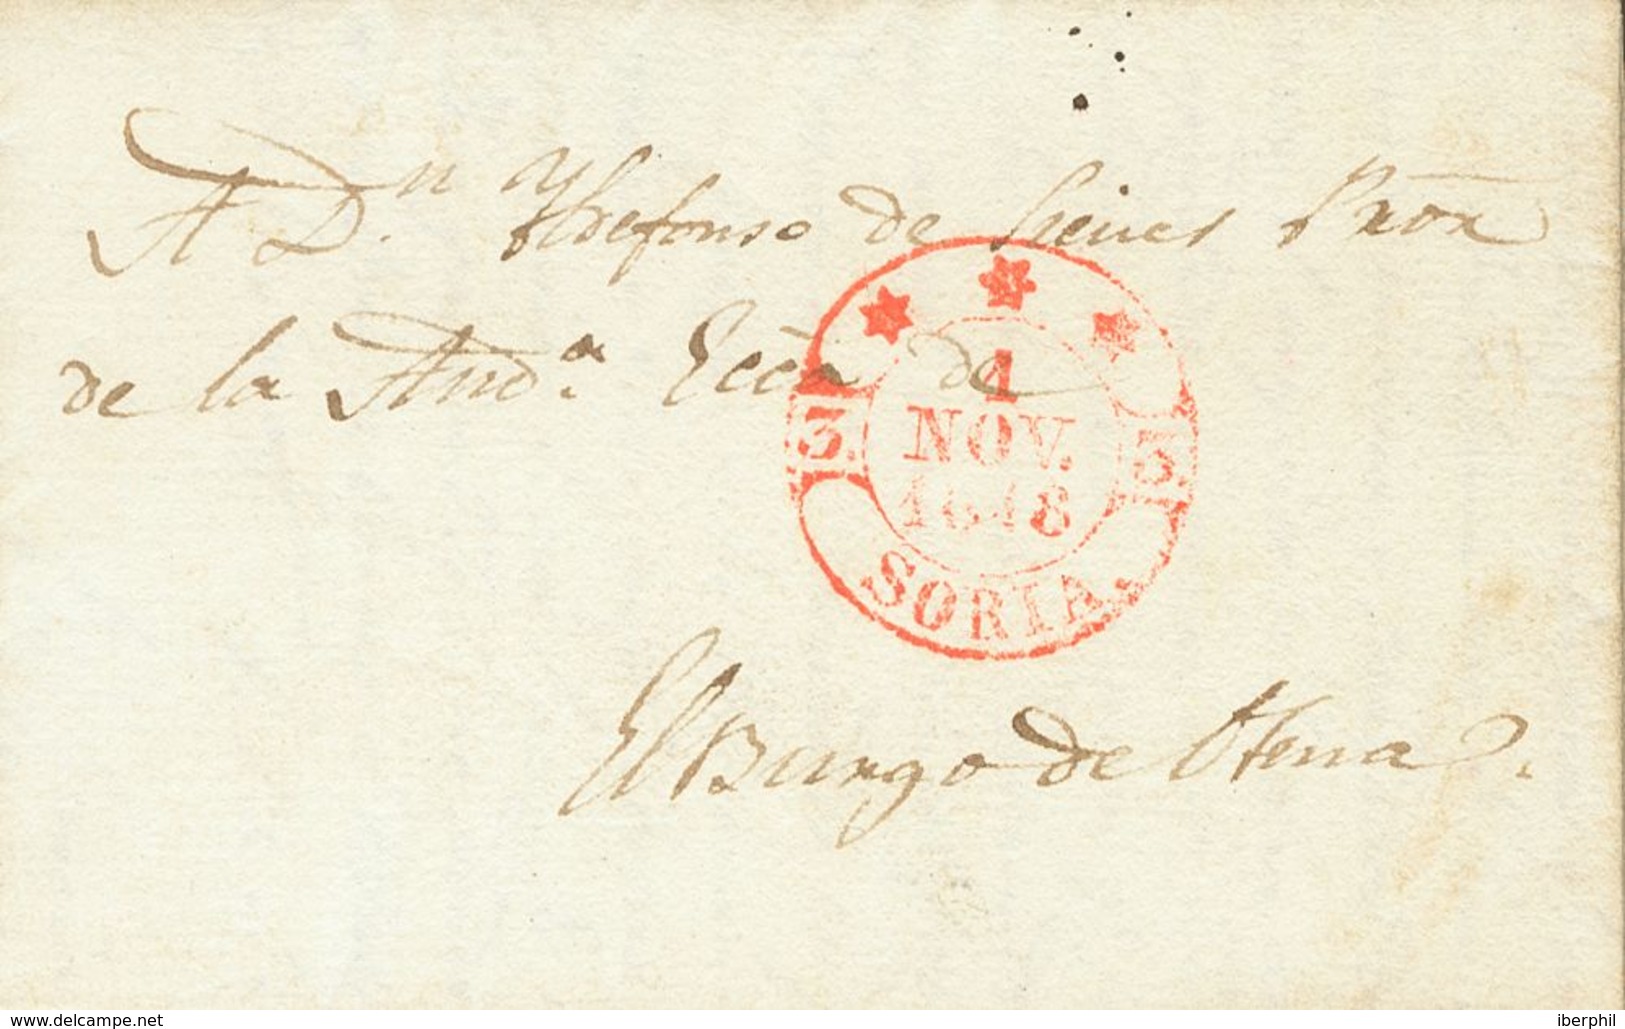 A Dn. Yldefonso de Sienes Pror
de la Auda. Ecca de
1
NOV.
1848
3. 3.
SORIA.
El Burgo de Osma
www.delcampe.net
iberphil